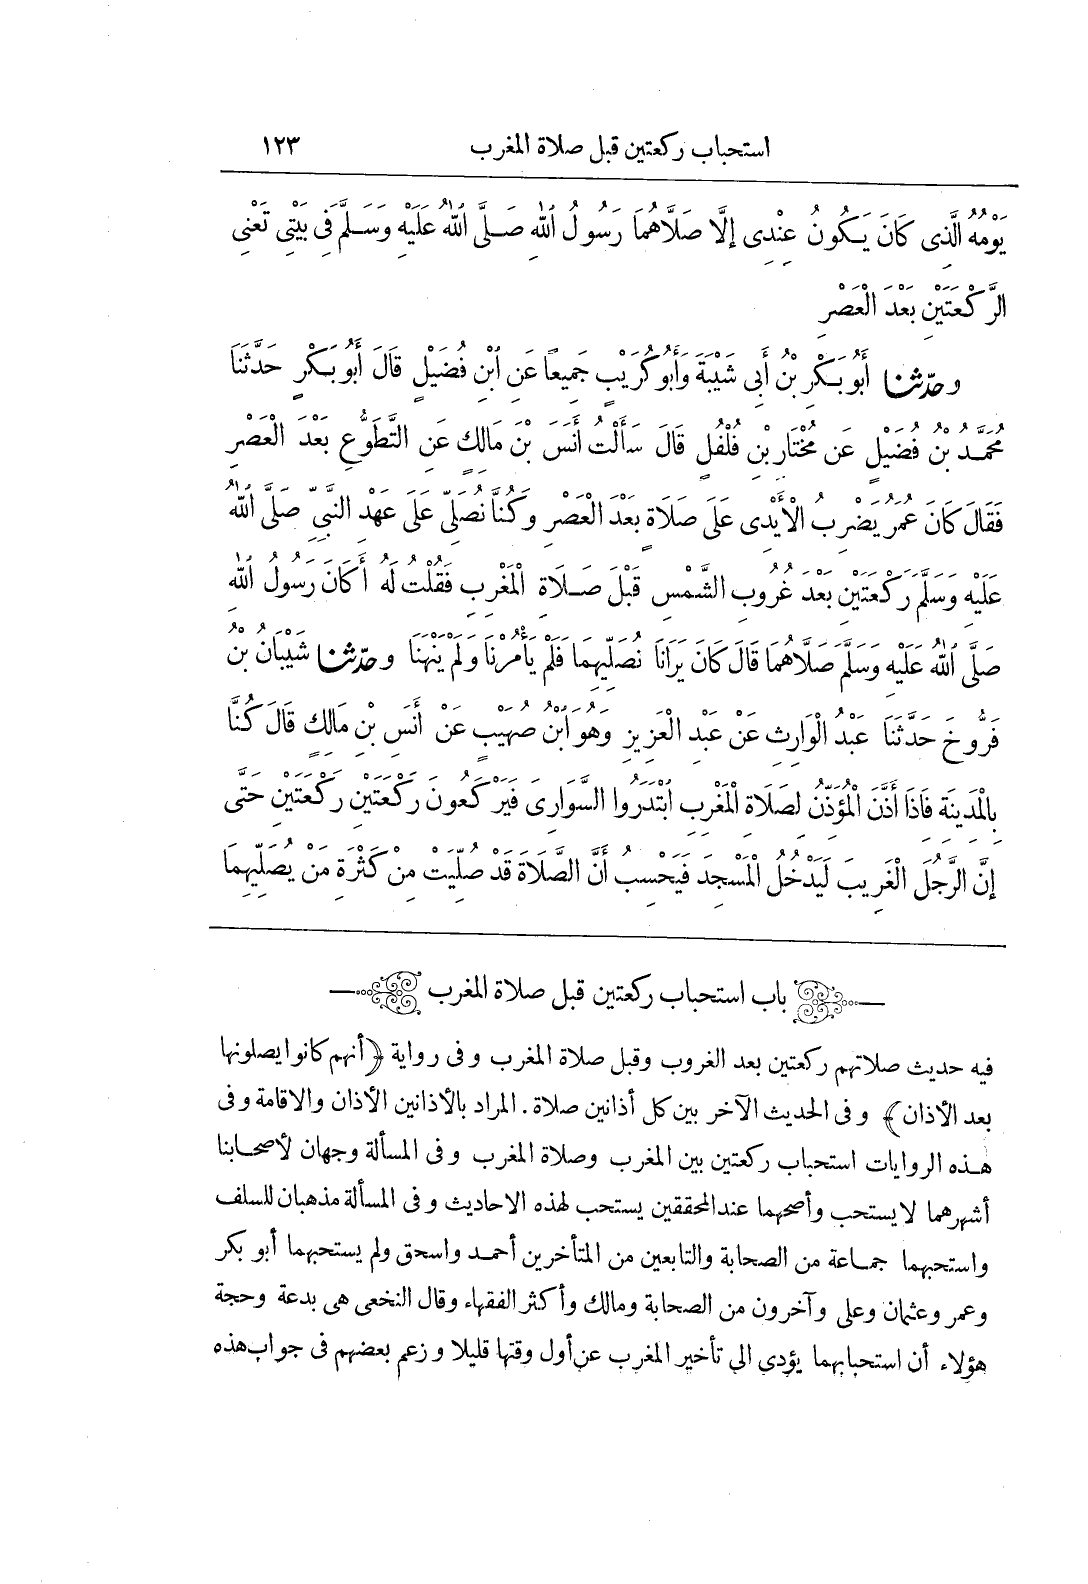 استحباب ركعتين قبل صلاة المغرب ١٢٣
يَوْمُهُ الَّذِى كَانَ يَكُونُ عِنْدِى إِلَّا صَلَّاهُمَا رَسُولُ اللهِ صَلَّى اللهُ عَلَيْهِ وَسَلَّمَ فِى بَيْتِى تَعْنِى
الرَّكْعَتَيْنِ بَعْدَ الْعَصْرِ
وحدّثنا أَبُو بَكْرِ بْنُ أَبِى شَيْبَةَ وَأَبُو كُرَيْبٍ جَمِيعًا عَنِ ابْنِ فُضَيْلٍ قَالَ أَبُو بَكْرٍ حَدَّثَنَا
مُحَمَّدُ بْنُ فُضَيْلٍ عَنْ مُخْتَارِ بْنِ فُلْفُلٍ قَالَ سَأَلْتُ أَنَسَ بْنَ مَالِكٍ عَنِ التَّطَوُّعِ بَعْدَ الْعَصْرِ
فَقَالَ كَانَ عُمَرُ يَضْرِبُ الْأَيْدِى عَلَى صَلَاةٍ بَعْدَ الْعَصْرِ وَكُنَّا نُصَلِّى عَلَى عَهْدِ النَّبِىِّ صَلَّى اللهُ
عَلَيْهِ وَسَلَّمَ رَكْعَتَيْنِ بَعْدَ غُرُوبِ الشَّمْسِ قَبْلَ صَلَاةِ الْمَغْرِبِ فَقُلْتُ لَهُ أَكَانَ رَسُولُ اللهِ
صَلَّى اللهُ عَلَيْهِ وَسَلَّمَ صَلَّاهُمَا قَالَ كَانَ يَرَانَا نُصَلِّيهِمَا فَلَمْ يَأْمُرْنَا وَلَمْ يَنْهَنَا وحدّثنا شَيْبَانُ بْنُ
فَرُّوخَ حَدَّثَنَا عَبْدُ الْوَارِثِ عَنْ عَبْدِ الْعَزِيزِ وَهُوَ ابْنُ صُهَيْبٍ عَنْ أَنَسِ بْنِ مَالِكٍ قَالَ كُنَّا
بِالْمَدِينَةِ فَاذَا أَذَّنَ الْمُؤَذِّنُ لِصَلَاةِ الْمَغْرِبِ ابْتَدَرُوا السَّوَارِىَ فَيَرْكَعُونَ رَكْعَتَيْنِ رَكْعَتَيْنِ حَتَّى
إِنَّ الرَّجُلَ الْغَرِيبَ لَيَدْخُلُ الْمَسْجِدَ فَيَحْسِبُ أَنَّ الصَّلَاةَ قَدْ صُلِّيَتْ مِنْ كَثْرَةِ مَنْ يُصَلِّيهِمَا
باب استحباب ركعتين قبل صلاة المغرب
فيه حديث صلاتهم ركعتين بعد الغروب وقبل صلاة المغرب وفى رواية ﴿أنهم كانوا يصلونها
بعد الأذان﴾ وفى الحديث الآخر بين كل أذانين صلاة. المراد بالأذانين الأذان والاقامة وفى
هذه الروايات استحباب ركعتين بين المغرب وصلاة المغرب وفى المسألة وجهان لأصحابنا
أشهرهما لا يستحب وأصحهما عند المحققين يستحب لهذه الاحاديث وفى المسألة مذهبان للسلف
واستحبهما جماعة من الصحابة والتابعين من المتأخرين أحمد واسحق ولم يستحبهما أبو بكر
وعمر وعثمان وعلى وآخرون من الصحابة ومالك وأكثر الفقهاء وقال النخعى هى بدعة وحجة
هؤلاء أن استحبابهما يؤدى الى تأخير المغرب عن أول وقتها قليلا وزعم بعضهم فى جواب هذه